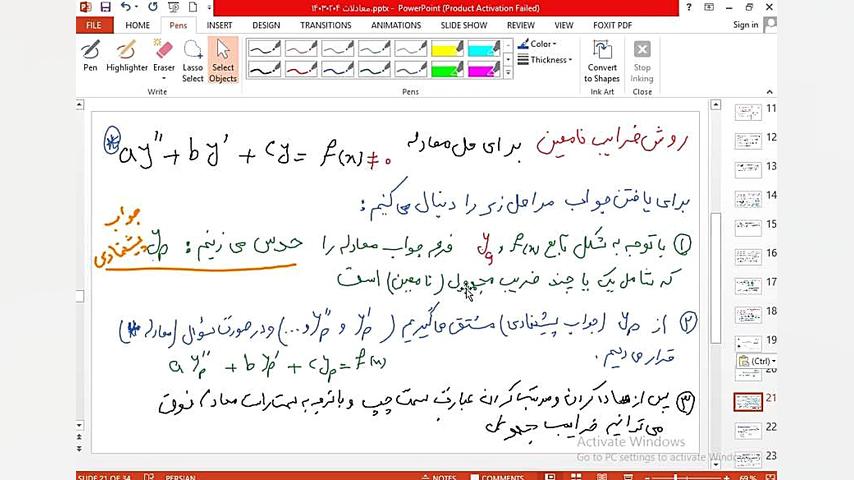 معادلات ۱۴۰۳۰۲۰۴.pptx - PowerPoint (Product Activation Failed)
FILE HOME Pens INSERT DESIGN TRANSITIONS ANIMATIONS SLIDE SHOW REVIEW VIEW FOXIT PDF Sign in
Pen Highlighter Eraser Lasso Select Select Objects
Color Thickness
Convert to Shapes Stop Inking
Write Pens Ink Art Close
روش ضرایب نامعین برای حل معادله ay" + by' + cy = f(x) ≠ 0 *
برای یافتن جواب مراحل زیر را دنبال می کنیم:
① با توجه به شکل تابع f(x) و yg فرم جواب معادله را حدس می زنیم: yp جواب پیشنهادی
که شامل یک یا چند ضریب مجهول (نامعین) است
② از yp (جواب پیشنهادی) مشتق می گیریم (y'p و y"p و ...) و در صورت سؤال (معادله *)
قرار می دهیم.
a y"p + b y'p + c yp = f(x)
③ پس از ساده کردن و مرتب کردن عبارت سمت چپ و با توجه به سمت راست معادله فوق
می توانیم ضرایب مجهول
Activate Windows
Go to PC settings to activate Windows.
11
12
13
14
15
16
17
18
19
(Ctrl)
20
21
22
23
SLIDE 21 OF 34 PERSIAN NOTES COMMENTS 69%